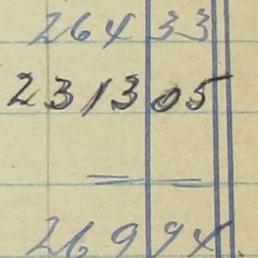 264 33
2313 05
269 94